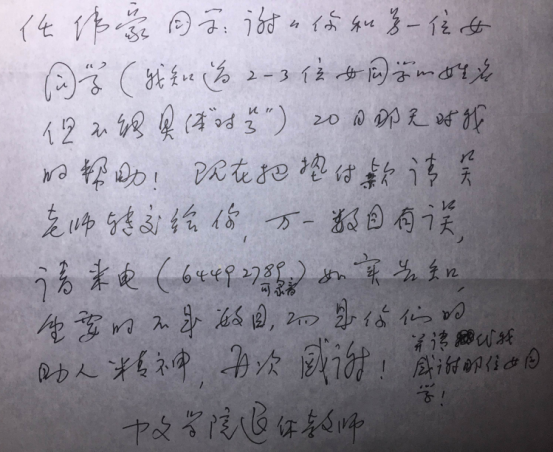 任伟豪同学：谢谢你和另一位女
同学（我知道2-3位女同学的姓名
但不能具体"对号"）20日那天对我
的帮助！现在把垫付款请吴
老师转交给你，万一数目有误，
请来电（64492789可录音）如实告知，
重要的不是数目，而是你们的
助人精神，再次感谢！
并请代我
感谢那位女同
学！
中文学院退休教师